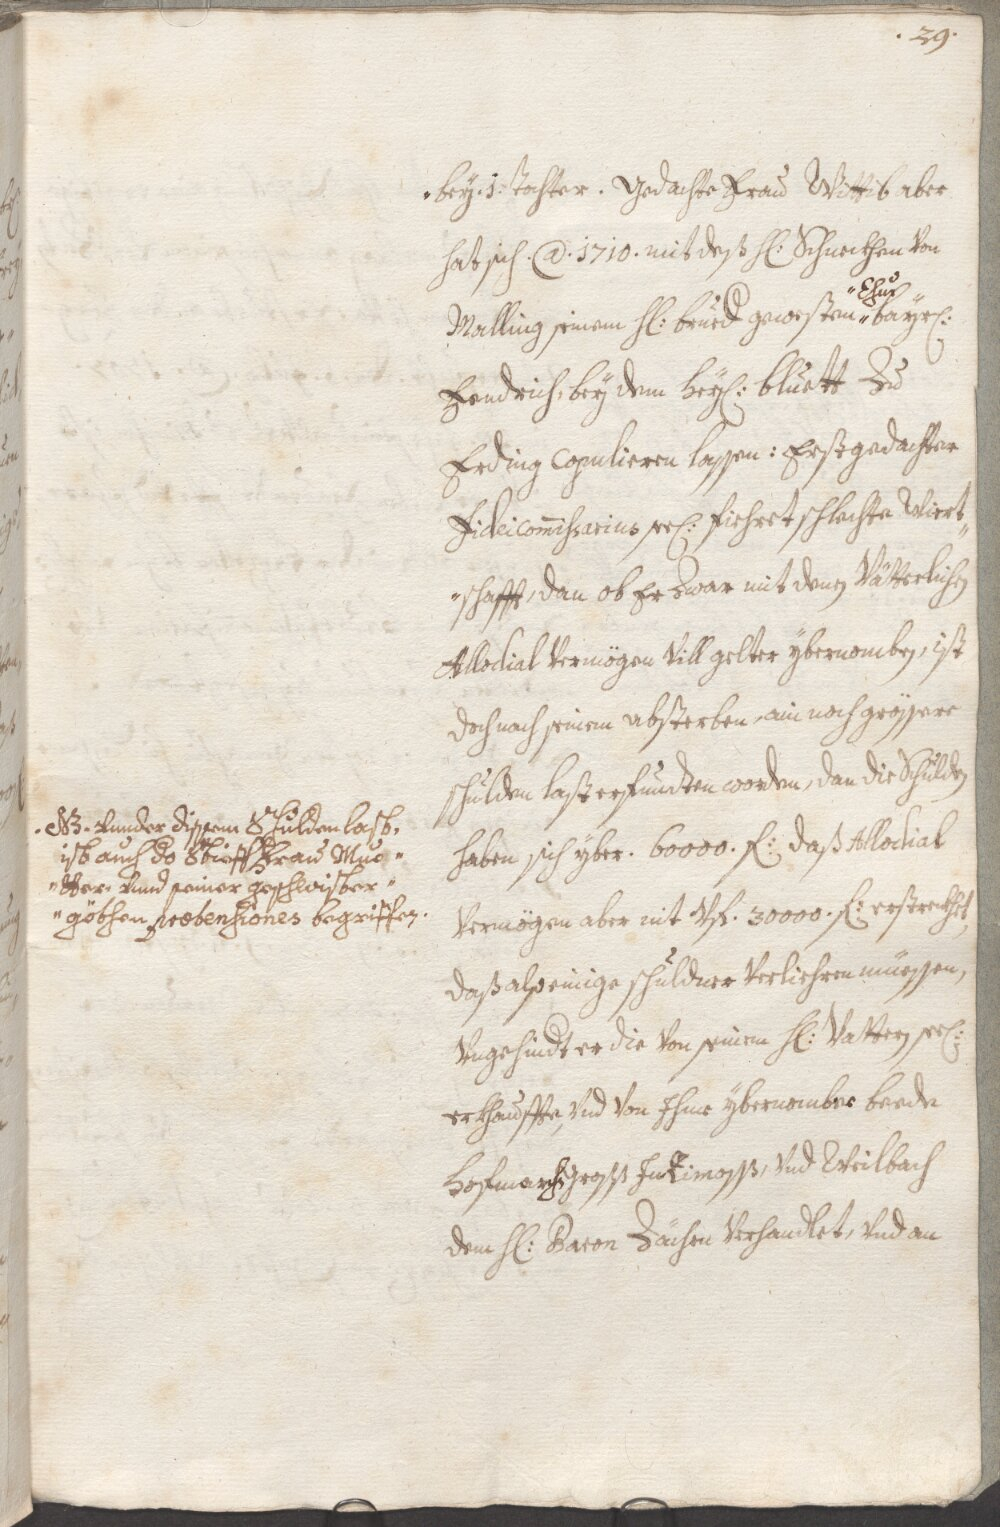 . 29.
"bey. 1. tochter. Gedachte Frau Wittib aber
hat sich. @. 1710. mit deß hl: Schneckhen von
"Chur
Malling seinem hl: brued gewesten "bayrl:
Fendrich, bey dem heyl: bluett zu
Erding copulieren lassen: Erstgedachter
Fideicommissarius seel: fiehret schlechte Wiert"
"schafft, dan ob Er zwar mit denen Vätterlichen
Allodial Vermögen vill gelter ybernomben, ist
doch nach seinem absterben, ain noch grössere
schulden last erfundten worden, dan die Schulden
haben sich yber. 60000. fl: daß Allodial
Vermögen aber nit vf. 30000. fl: erstreckhet,
daß also einige schuldner verliehren müessen,
vngehindt er die von seinem hl: Vattern seel:
erkhauffte, vnd von Ihme ybernombne beede
Hofmarch Gross Inzimoss, vnd Weilbach
dem hl: Baron Zächen verhandlet, vnd an
. NB. vunder dissem Schulden last,
ist auch do Stieff Frau Muo"
"tter. vnd seiner geschwister"
"göthen prætensiones begriffen.